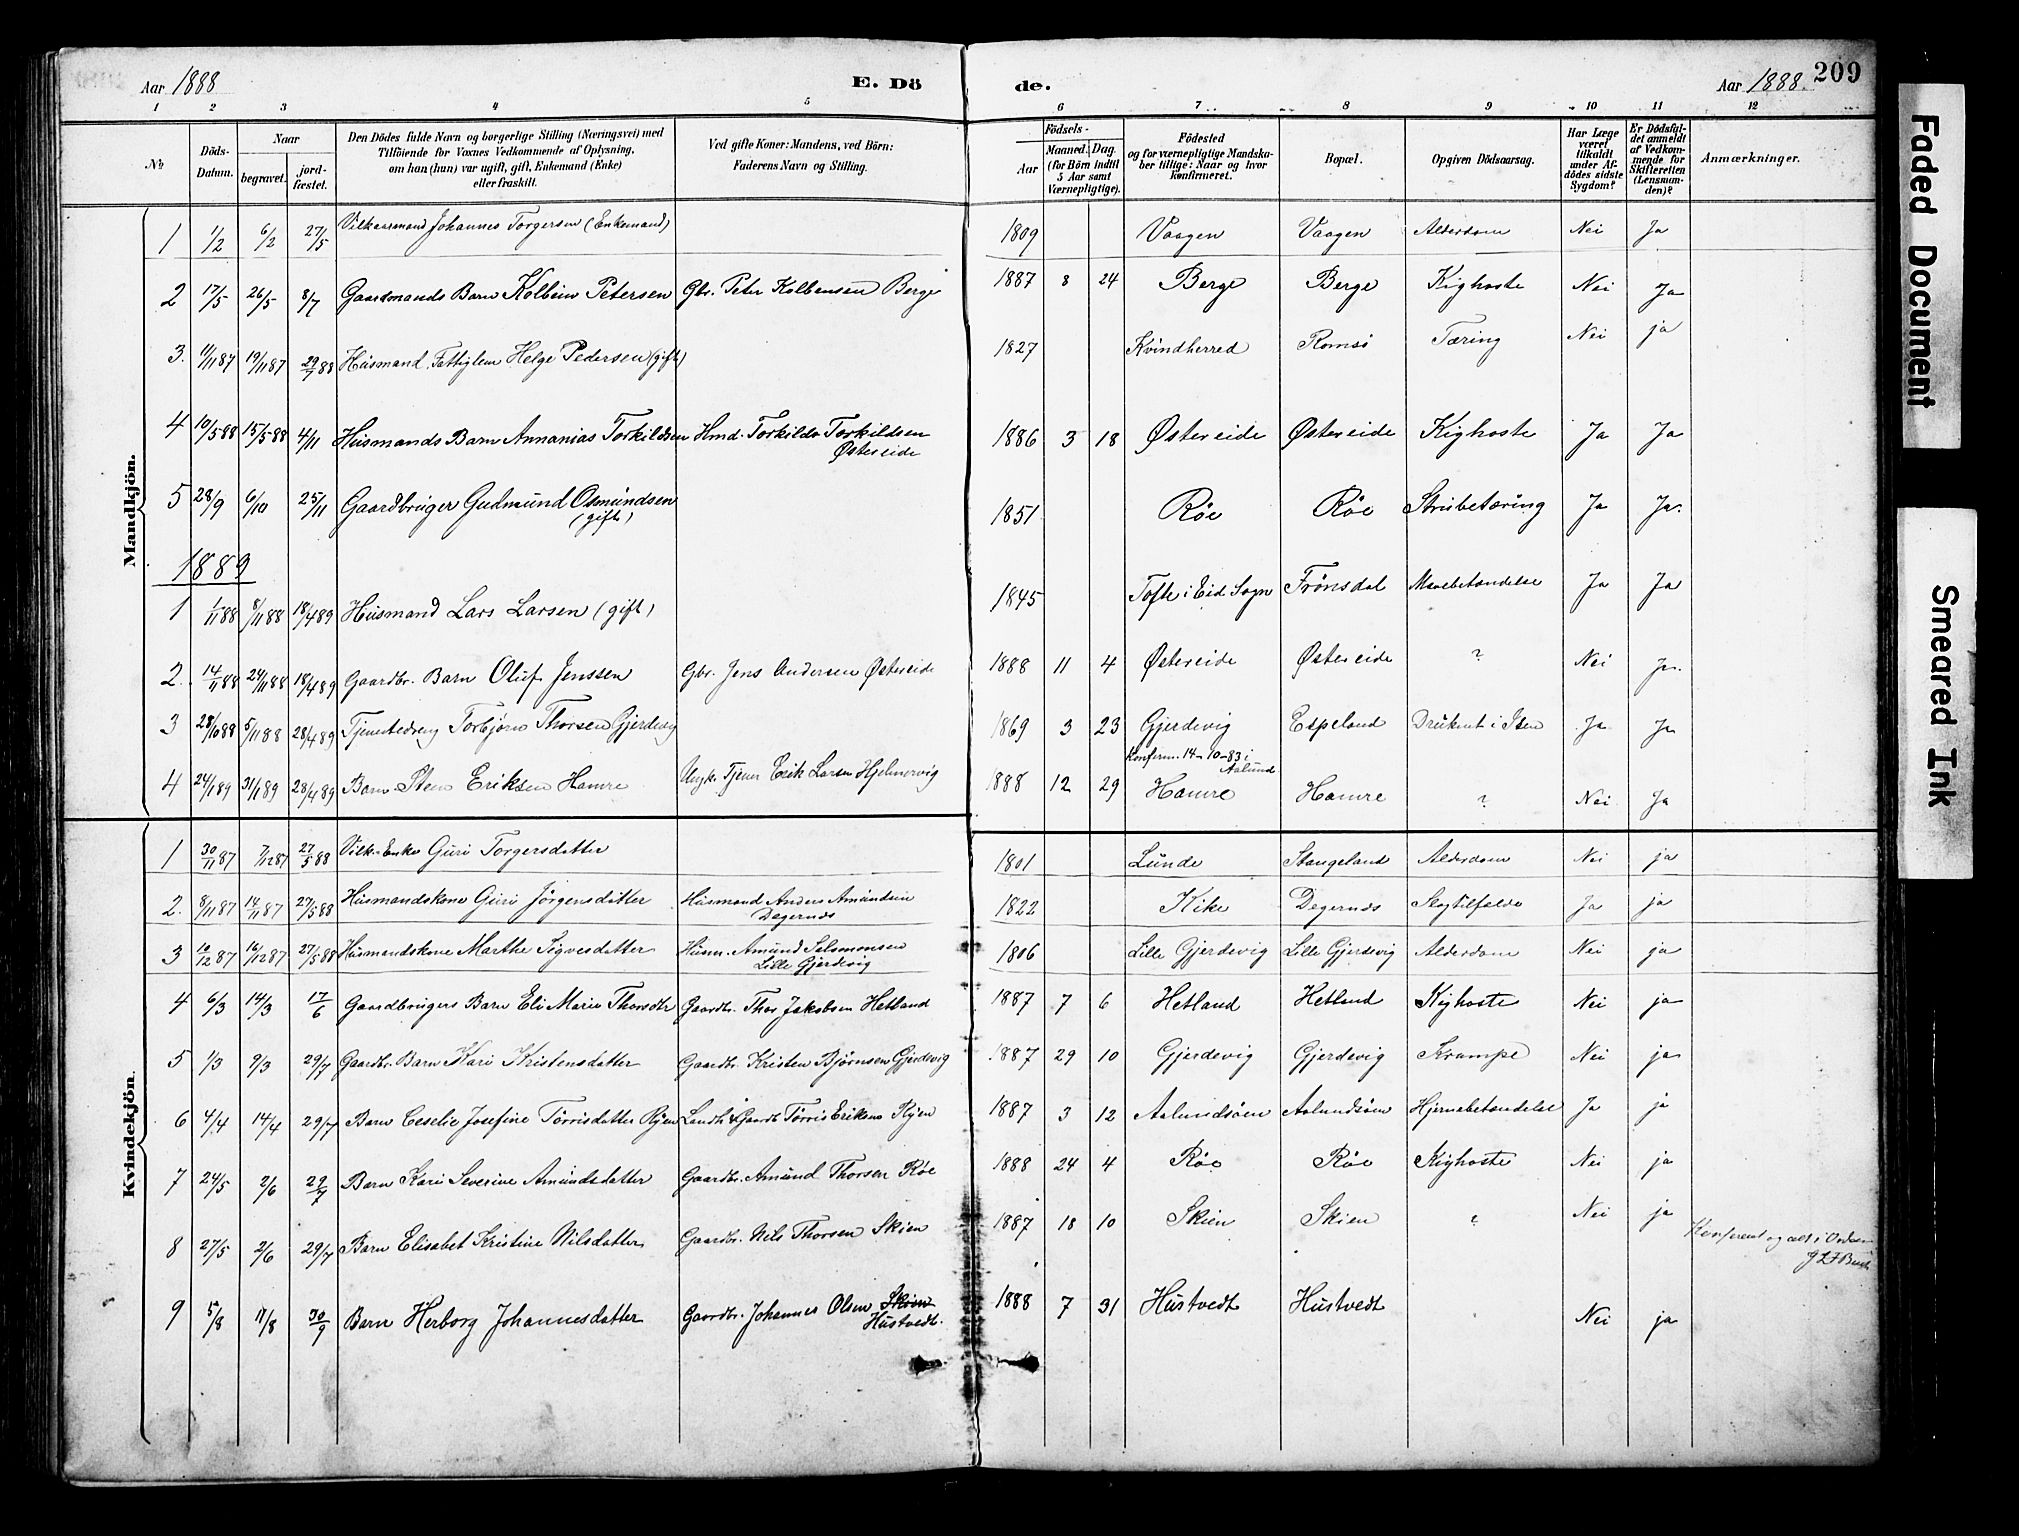 Aar 1888 E. Dö de. Aar 1888. 209
1 2 3 4 5 6 7 8 9 10 11 12
№ Döds-Datum. Naar begravet. jord-fæstet. Den Dödes fulde Navn og borgerlige Stilling (Næringsvei) med Tilföiende for Voxnes Vedkommende af Oplysning, om han (hun) var ugift, gift, Enkemand (Enke) eller fraskilt. Ved gifte Koner: Mandens, ved Börn: Faderens Navn og Stilling. Födsels- Aar Maaned. Dag. (for Börn indtil 5 Aar samt Værnepligtige). Födested og for værnepligtige Mandska-ber tillige: Naar og hvor konfirmeret. Bopæl. Opgiven Dödsaarsag. Har Læge været tilkaldt under Af-dödes sidste Sygdom? Er Dödsfal-det anmeldt af Vedkom-mende for Skifteretten (Lensman-den)? Anmærkninger.
Mandkjön.
1 1/2 6/2 27/5 Vilkaarmand Johannes Torgersen (Enkemand) 1809 Vaagen Vaagen Alderdom Nei Ja
2 17/5 26/5 8/7 Gaardmands Barn Kolbein Petersen Gbr. Peter Kolbensen Berge 1887 8 24 Berge Berge Kighoste Nei Ja
3. 11/11 87 19/11 87 29/7 88 Husmand Fattiglem Helge Pedersen (gift) 1827 Kvindherred Romsö Tæring Nei ja
4 10/5 88 15/5 88 4/11 Husmands Barn Annanias Torkildsen Hmd. Torkilds Torkildsen 1886 3 18 Østereide Østereide Kighoste Ja Ja
Østereide
5 28/9 6/10 25/11 Gaardbruger Gudmund Osmundsen 1851 Røe Røe Strubetæring Ja Ja.
(gift)
1889
1 1/11 88 8/11 88 18/4 89 Husmand Lars Larsen (gift) 1845 Tofte i Eid Sogn Frönsdal Mavebetændelse Ja Ja
2. 14/11 88 24/11 88 18/4 89 Gaardbr. Barn Oluf Jenssen Gbr. Jens Andersen Østereide 1888 11 4 Østereide Østereide ? Nei Ja
3 28/10 88 5/11 88 28/4 89 Tjenstedreng Torbjørn Thorsen Gjerdevig 1869 3 23 Gjerdevig Espeland Druknet i Isen Ja Ja
Konferm. 14-10-83 i Aalund
4 24/1 89 31/1 89 28/4 89 Barn Sten Eriksen Hamre Ungk. Tjener Erik Larsen Hjelmervig 1888 12 29 Hamre Hamre ? Nei Ja
Kvindekjön.
1 30/11 87 7/12 87 27/5 88 Vilk. Enke Guri Torgersdatter 1801 Lunde Stangeland Alderdom Nei ja
2. 8/11 87 14/11 87 27/5 88 Husmandskone Guri Jörgensdatter Husmand Anders Amundsen 1822 Kike Degernæs Slagtilfælde Ja ja
Degernæs
3 10/12 87 16/12 87 27/5 88 Husmandskone Marthe Sigvesdatter Husm. Amund Salomonsen 1806 Lille Gjerdevig Lille Gjerdevig Alderdom Nei ja
Lille Gjerdevig
4 6/3 14/3 17/6 Gaardbrugers Barn Eli Marie Thorsdtr Gaardbr. Thor Jakobsen Hetland 1887 7 6 Hetland Hetland Kighoste Nei ja
5 1/3 9/3 29/7 Gaardbr. Barn Kari Kristensdatter Gaardbr. Kristen Bjørnsen Gjerdevig 1887 29 10 Gjerdevig Gjerdevig Krampe Nei ja
6 4/4 14/4 29/7 Barn Ceselie Josefine Törrisdatter Röjen Landh & Gaardb Törris Eriksen Röjen 1887 3 12 Aalundsöen Aalundsöen Hjernebetændelse Ja ja
7 24/5 2/6 29/7 Barn Kari Severine Amundsdatter Gaardbr. Amund Thorsen Røe 1888 24 4 Røe Røe Kighoste Nei ja
8 27/5 2/6 29/7 Barn Elisabet Kristine Nilsdatter Gaardbr. Nils Thorsen Skien 1887 18 10 Skien Skien ? Nei ja
Konfereret og alt i Orden
9 5/8 11/8 30/9 Barn Herborg Johannesdatter Gaardbr. Johannes Olsen Skien 1888 7 31 Hustvedt Hustvedt Nei ja
Hustvedt.
Faded Document
Smeared Ink